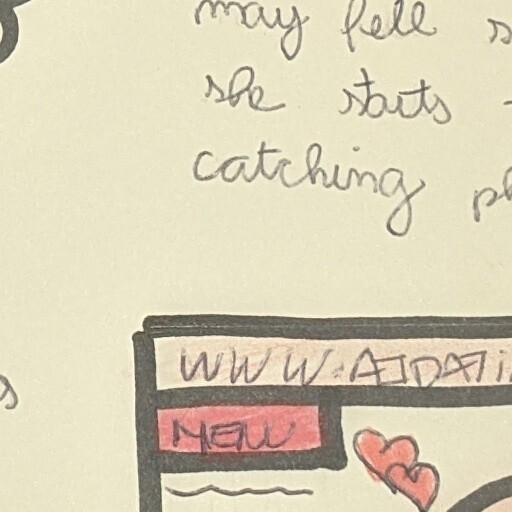 may fell
she starts
catching
s
WWW.AIDATI
MENU